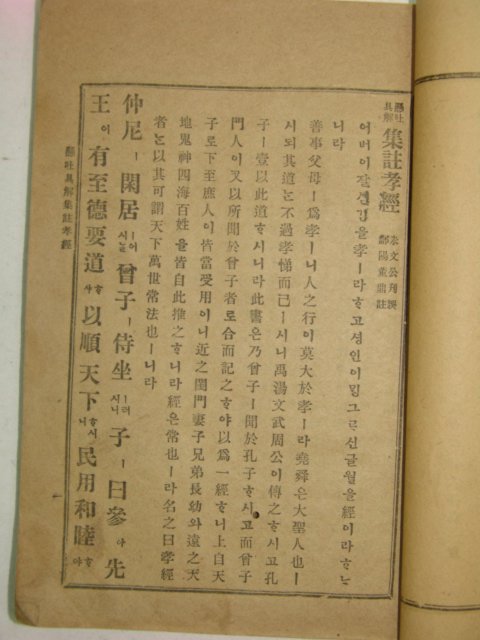 懸吐具解 集註孝經 朱文公刊誤 鄱陽董鼎註
어버이잘셤김을孝ㅣ라ᄒᆞ고셩인이밍그르신글월을經이라ᄒᆞᄂᆞ
니라
善事父母ㅣ爲孝ㅣ니人之行이莫大於孝ㅣ라堯舜은大聖人也ㅣ
시되其道ᄂᆞᆫ不過孝悌而已ㅣ시니禹湯文武周公이傳之ᄒᆞ시고孔
子ㅣ壹以此道ᄒᆞ시니라此書ᄂᆞᆫ乃曾子ㅣ聞於孔子ᄒᆞ시고而曾子
門人이又以所聞於曾子者로合而記之ᄒᆞ야以爲一經ᄒᆞ니上自天
子로下至庶人이皆當受用이니近之閨門妻子兄弟長幼와遠之天
地鬼神四海百姓을皆自此推之ᄒᆞ니라經은常也ㅣ라名之曰孝經
者ᄂᆞᆫ以其可謂天下萬世常法也ㅣ니라
仲尼ㅣ閑居ㅣ어시ᄂᆞᆯ曾子ㅣ侍坐ㅣ러시니子ㅣ曰參아先
王이有至德要道ᄒᆞ샤以順天下ᄒᆞ시니民用和睦ᄒᆞ야
懸吐具解集註孝經